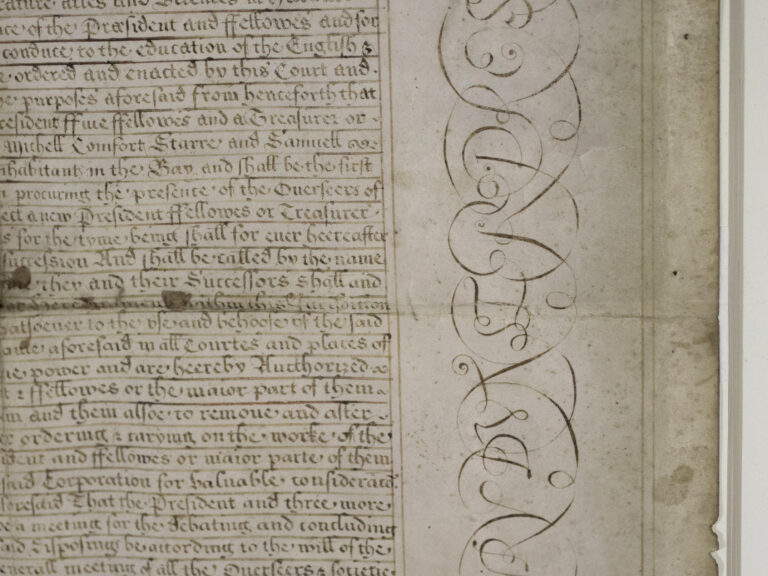 ce of the Præsident and ffellowes and for
conduce to the education of the English &
ordered and enacted by this Court and
purposes aforesaid from henceforth that
resident ffiue ffellowes and a Treasurer or
Mitchell Comfort Starre and Samuell
nhabitants in the Bay and shall be the first
procuring the presence of the Overseers of
ect a new President ffellowes or Treasurer
s for the tyme being shall for euer heereafter
succession And shall be called by the name
they and their Successors shall and
within this
hatsoeuer to the vse and behoofe of the said
aforesaid in all Courtes and places of
power and are heereby Authorized
& ffellowes or the maior part of them
and them alsoe to remoue and after
ordering & carying on the worke of the
ident and ffellowes or maior parte of them
said Corporation for valuable considerac
foresaid That the President and three more
a meeting for the debating and concluding
aid disposing be according to the will of the
enerall meeting of all the Overseers & societie